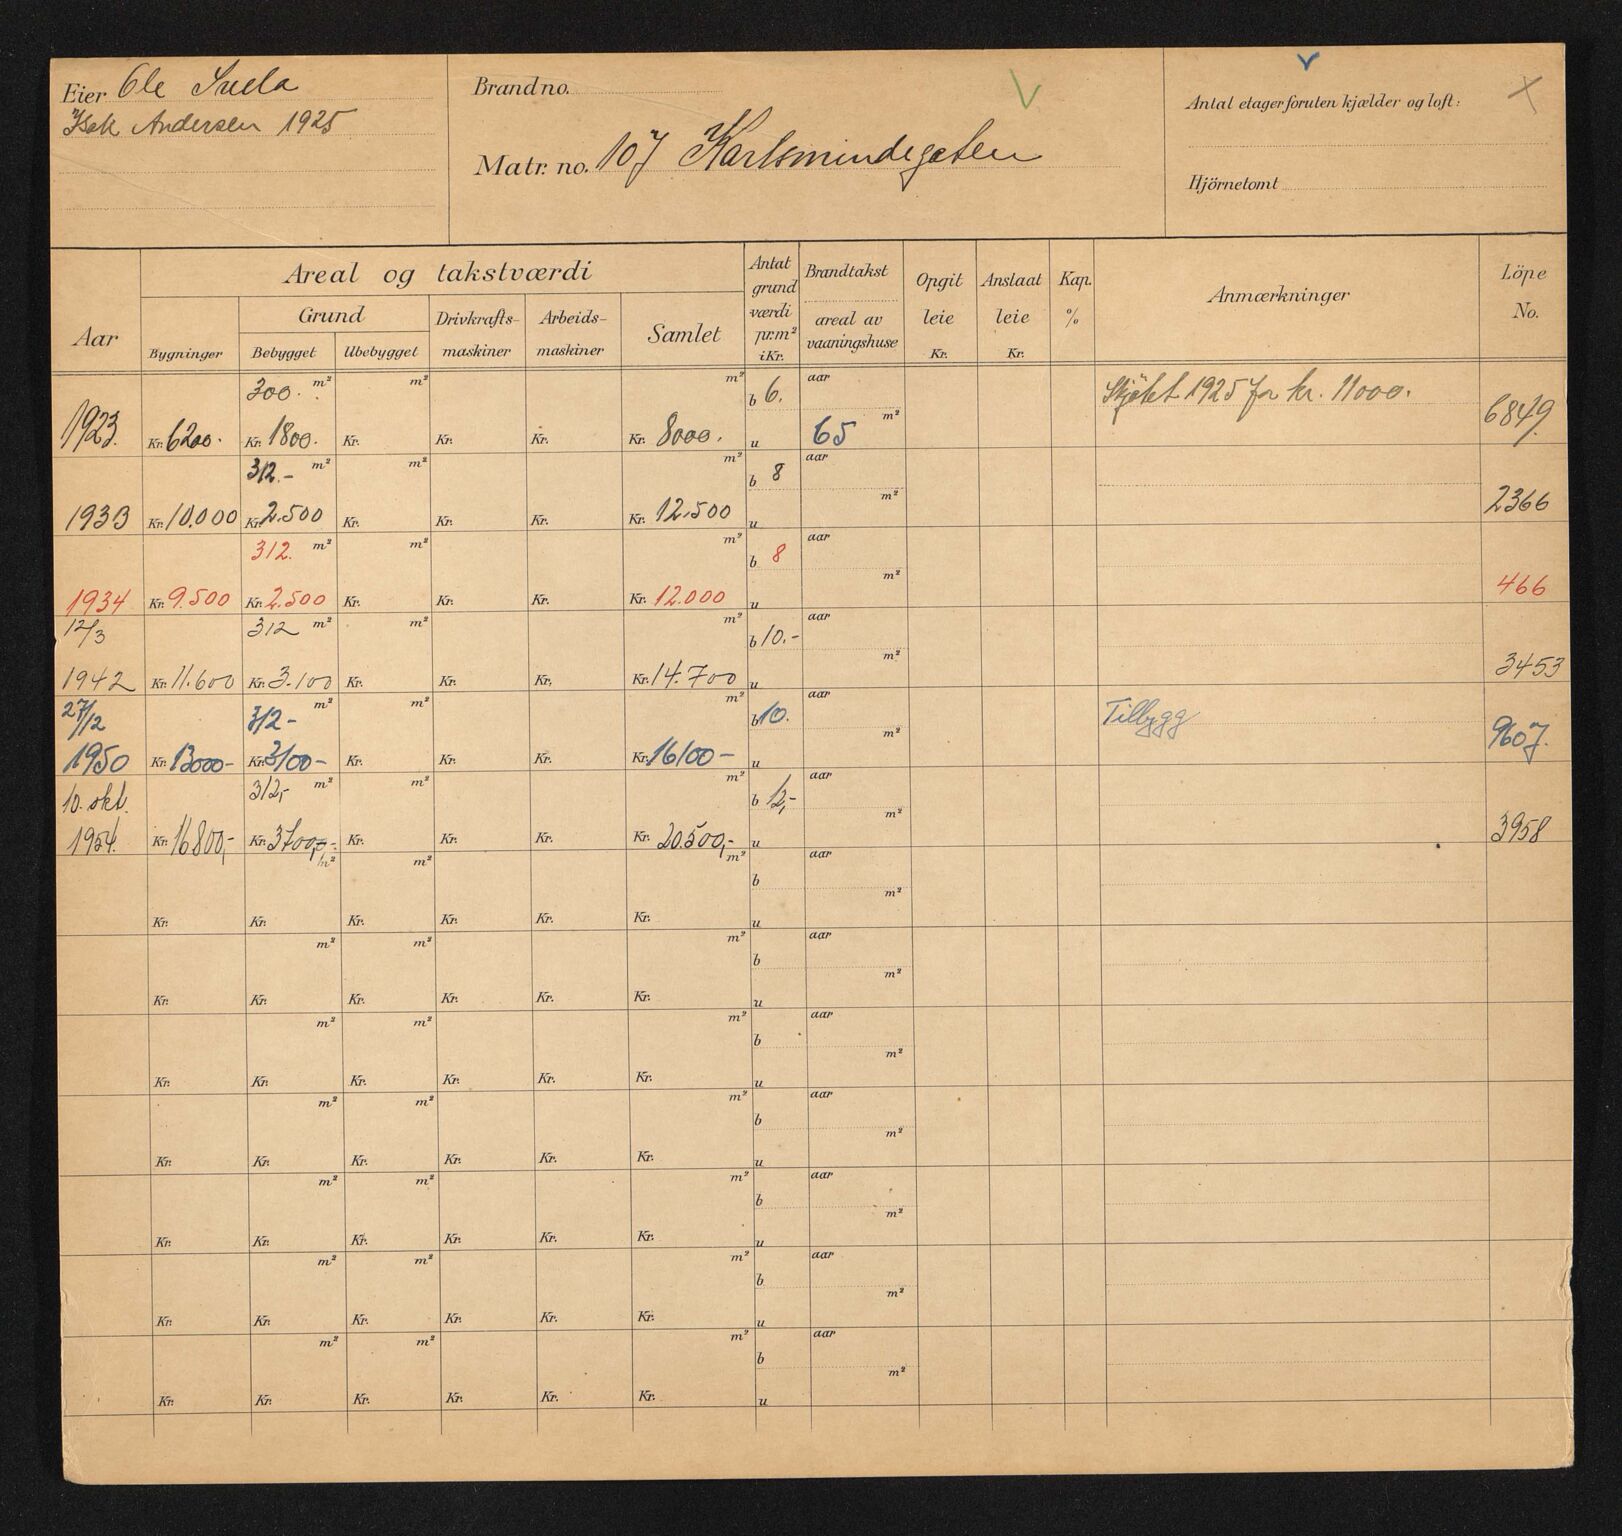 Eier Ole Svela
Isak Andersen 1925
Brand no.
Matr. no. 107 Karlsmindegaten
Antal etager foruten kjælder og loft:
Hjörnetomt
Aar
Areal og takstværdi
Bygninger
Grund
Bebygget Ubebygget
Drivkrafts-maskiner
Arbeids-maskiner
Samlet
Antat grundværdi pr. m² i Kr.
Brandtakst
areal av vaaningshuse
Opgit leie Kr.
Anslaat leie Kr.
Kap. %
Anmærkninger
Löpe No.
300. m² m² m² b 6. aar Skjötet 1925 for kr. 11000.
1923. Kr. 6200. Kr. 1800. Kr. Kr. Kr. Kr. 8000. u 65 m² 6849.
312.- m² m² m² b 8 aar
1933 Kr. 10.000 Kr. 2.500 Kr. Kr. Kr. Kr. 12.500 u m² 2366
312. m² m² m² b 8 aar
1934 Kr. 9.500 Kr. 2.500 Kr. Kr. Kr. Kr. 12.000 u m² 466
12/3 312 m² m² m² b 10.- aar
1942 Kr. 11.600 Kr. 3.100 Kr. Kr. Kr. Kr. 14.700 u m² 3453
27/12 312- m² m² m² b 10. aar Tilbygg
1950 Kr. 13000- Kr. 3100- Kr. Kr. Kr. Kr. 16100- u m² 9607.
10. okt. 312,- m² m² m² b 12,- aar
1954. Kr. 16800,- Kr. 3700,- Kr. Kr. Kr. Kr. 20.500,- u m² 3958
m² m² m² b aar
Kr. Kr. Kr. Kr. Kr. Kr. u m²
m² m² m² b aar
Kr. Kr. Kr. Kr. Kr. Kr. u m²
m² m² m² b aar
Kr. Kr. Kr. Kr. Kr. Kr. u m²
m² m² m² b aar
Kr. Kr. Kr. Kr. Kr. Kr. u m²
m² m² m² b aar
Kr. Kr. Kr. Kr. Kr. Kr. u m²
m² m² m² b aar
Kr. Kr. Kr. Kr. Kr. Kr. u m²
m² m² m² b aar
Kr. Kr. Kr. Kr. Kr. Kr. u m²